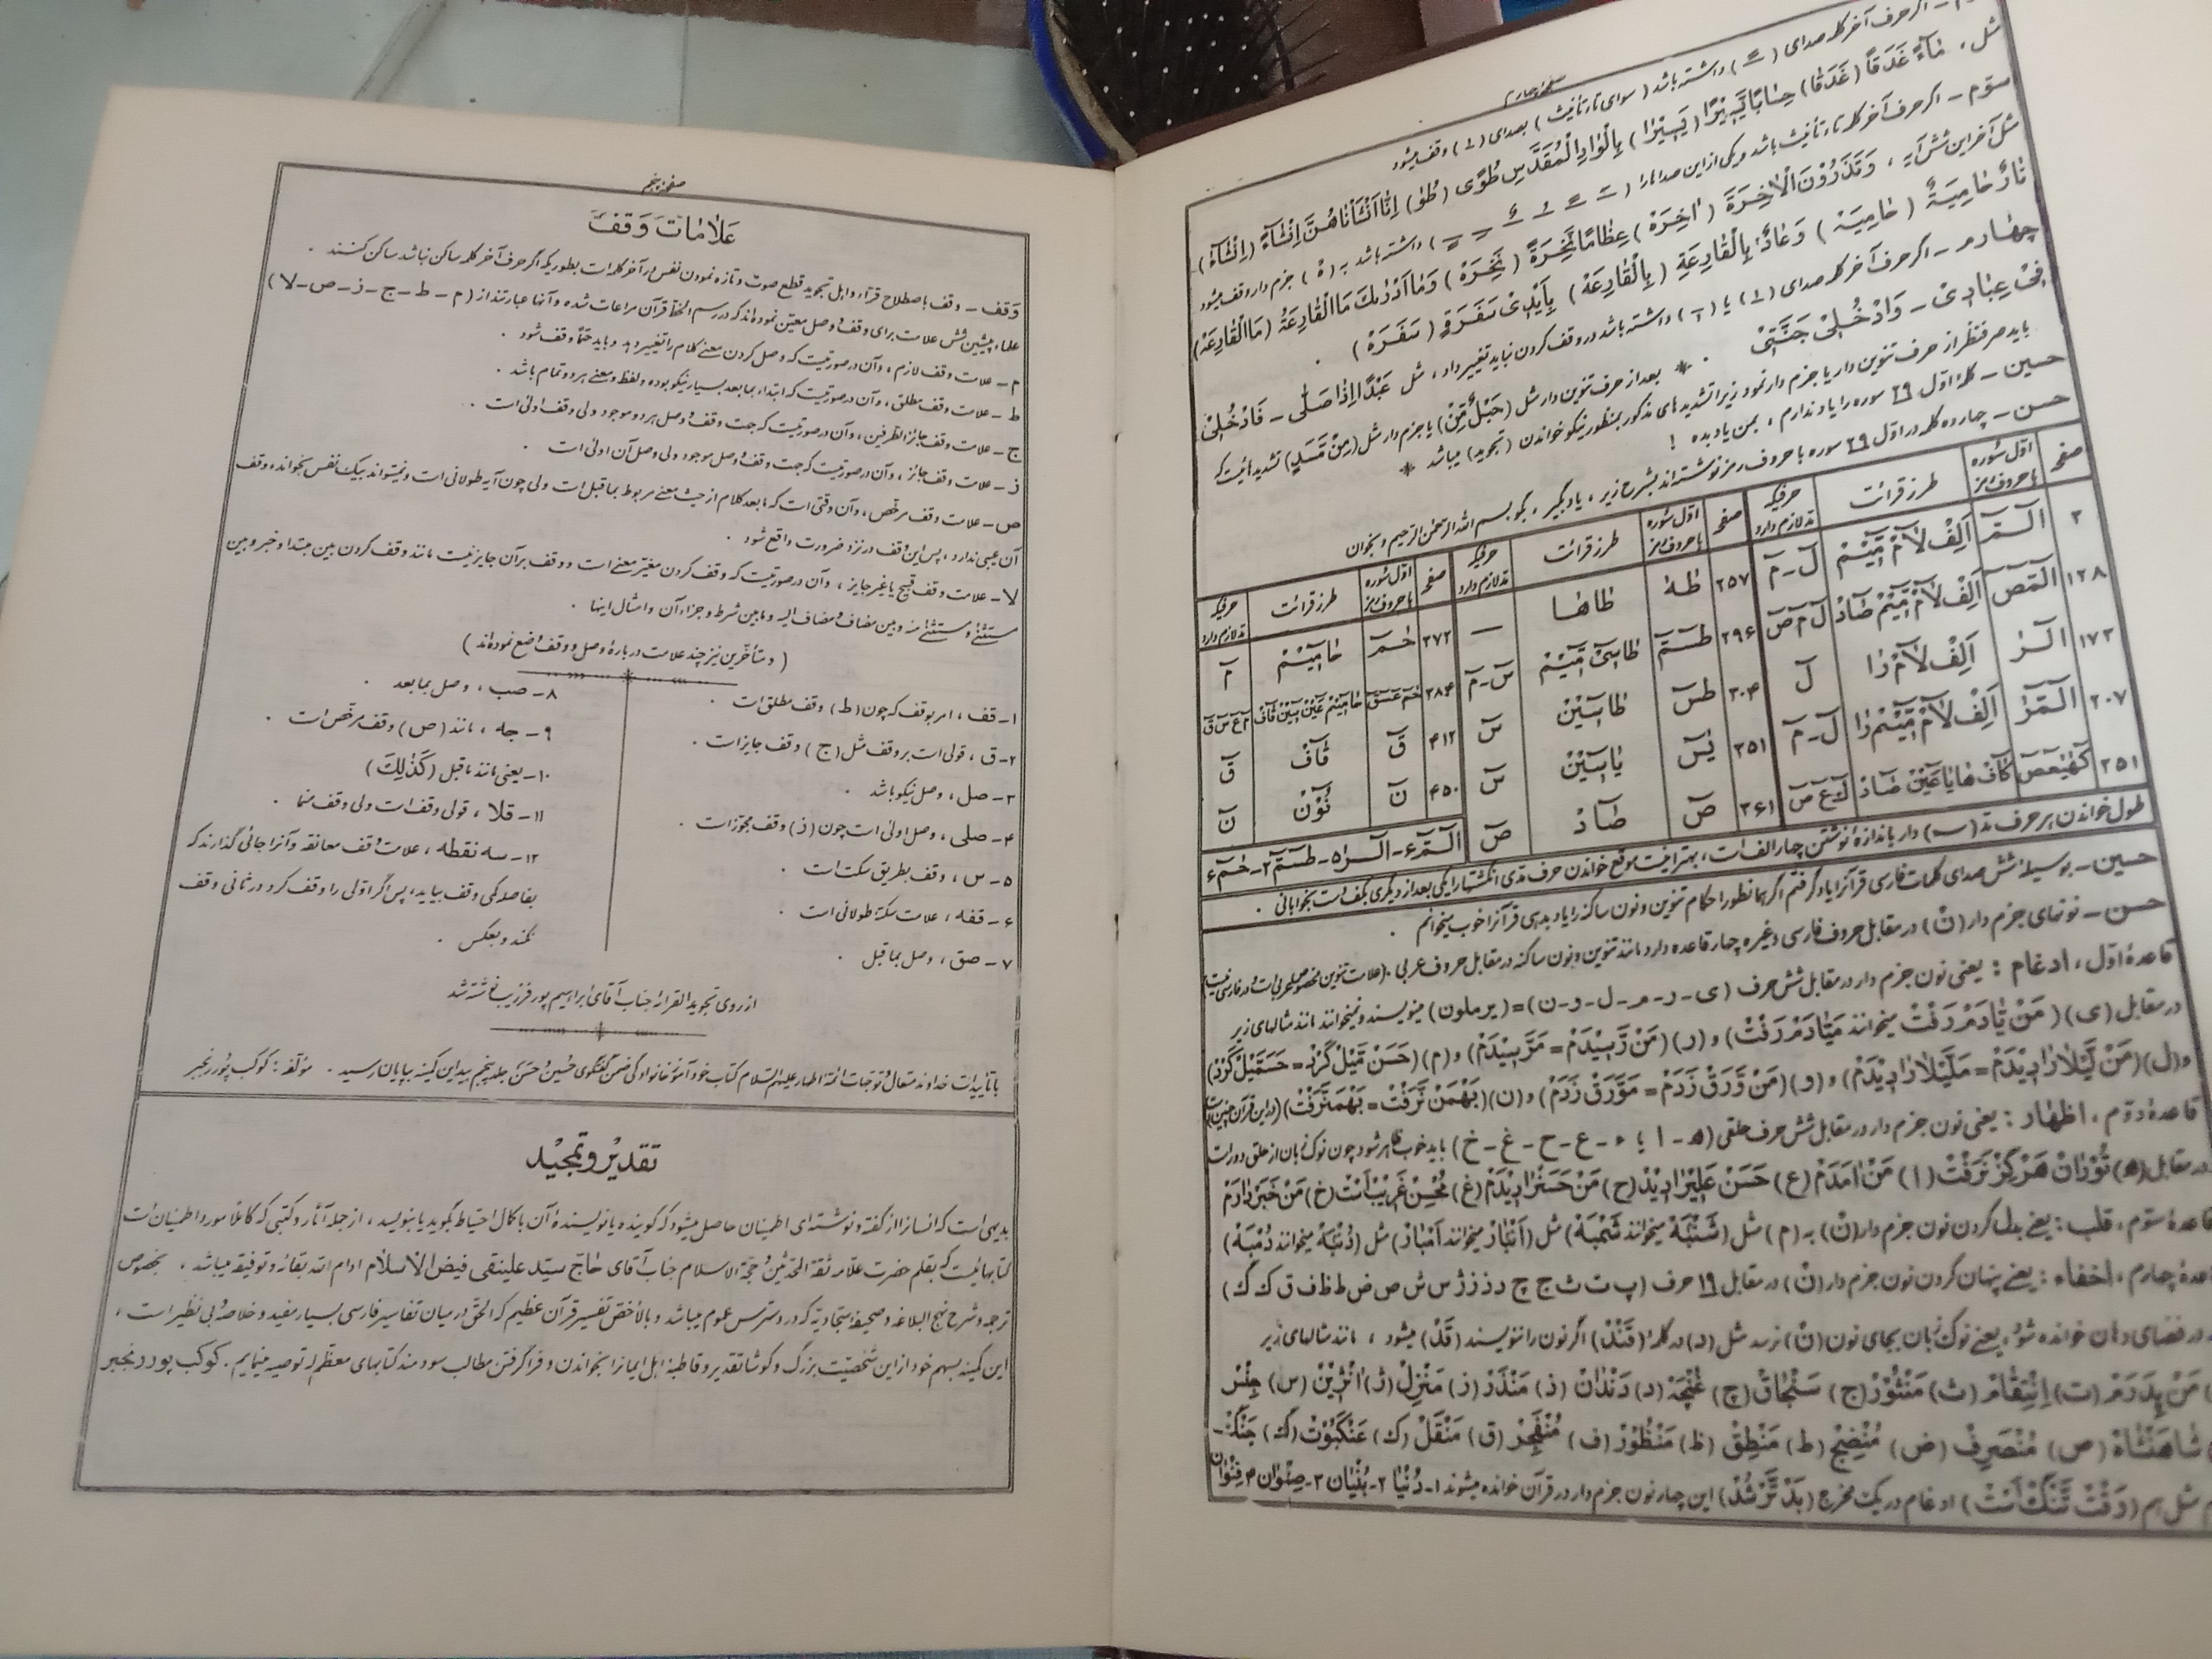 صفحهٔ چهارم
اگر حرف آخر کلمه صدای (ـً) داشته باشد (سوای تاء تأنیث) بصدای (ـا) وقف میشود
مثل، مٰآءً غَدَقاً (غَدَقٰا) حِسٰابًا یَسِیْرًا (یَسِیْرٰا) بِالْوٰادِ الْمُقَدَّسِ طُوًی (طُوٰا) اِنّٰا اَنْشَاْنٰاهُنَّ اِنْشٰآءً (اِنْشٰآءٰ)
سوّم – اگر حرف آخر کلمه تاء تأنیث باشد و یکی از این صداها را داشته باشد به (هْ) جزم دار وقف میشود
مثل آخر این شش آیه، وَتَذَرُوْنَ الْاٰخِرَةَ (اٰخِرَهْ) عِظٰامًا نَخِرَةً (نَخِرَهْ) وَمٰا اَدْرٰىكَ مَا الْقٰارِعَةُ (مَا الْقٰارِعَهْ)
نٰارٌ حٰامِیَةٌ (حٰامِیَهْ) وَعٰادٌ بِالْقٰارِعَةِ (بِالْقٰارِعَهْ) بِاَیْدِیْ سَفَرَةٍ (سَفَرَهْ)
چهارم – اگر حرف آخر کلمه صدای (ـا) یا داشته باشد در وقف کردن نباید تغییر داد، مثل عَبْدًا اِذٰا صَلّٰی – فَادْخُلِیْ
فِیْ عِبٰادِیْ – وَادْخُلِیْ جَنَّتِیْ . * بعد از حرف تنوین دار مثل (حَبْلٌ مِّنْ) یا جزم دار مثل (مِنْ مَّسَدٍ) تشدیدهائیست که
باید صرفنظر از حرف تنوین دار یا جزم دار نمود زیرا تشدیدهای مذکور بمنظور نیکو خواندن (تجوید) میباشد *
حسین – کلمهٔ اوّل ۲۹ سوره را یاد ندارم، بمن یاد بده !
حسن – چهارده کلمه در اوّل ۲۹ سوره با حروف رمز نوشته‌اند بشرح زیر، یاد بگیر، بگو بسم الله الرحمن الرحیم و بخوان
صفحه | اوّل سوره با حروف رمز | طرز قرائت | حرفیکه مدّ لازم دارد | صفحه | اوّل سوره با حروف رمز | طرز قرائت | حرفیکه مدّ لازم دارد | صفحه | اوّل سوره با حروف رمز | طرز قرائت | حرفیکه مدّ لازم دارد
۲ | الٓمٓ | اَلِفْ لٰآمْ مِّیْٓمْ | لٓ-مٓ | ۲۵۷ | طٰهٰ | طٰاهٰا | — | ۳۷۲ | حٰمٓ | حٰامِیْٓمْ | مٓ
۱۲۸ | الٓمٓصٓ | اَلِفْ لٰآمْ مِّیْٓمْ صٰآدْ | لٓ مٓ صٓ | ۲۹۶ | طٰسٓمٓ | طٰاسِیْٓ مِّیْٓمْ | سٓ-مٓ | ۳۸۴ | حٰمٓ عٓسٓقٓ | حٰامِیْٓمْ عَیْٓنْ سِیْٓنْ قٰآفْ | مٓ عٓ سٓ قٓ
۱۷۲ | الٓرٰ | اَلِفْ لٰآمْ رٰا | لٓ | ۳۰۴ | طٰسٓ | طٰاسِیْٓنْ | سٓ | ۴۱۲ | قٓ | قٰآفْ | قٓ
۲۰۷ | الٓمٓرٰ | اَلِفْ لٰآمْ مِّیْٓمْ رٰا | لٓ-مٓ | ۳۵۱ | یٰسٓ | یٰاسِیْٓنْ | سٓ | ۴۵۰ | نٓ | نُوْٓنْ | نٓ
۲۵۱ | کٓهٰیٰعٓصٓ | کٰآفْ هٰا یٰا عَیْٓنْ صٰآدْ | کٓ عٓ صٓ | ۳۶۱ | صٓ | صٰآدْ | صٓ | الٓمٓ۶-الٓرٰ۵-طٰسٓمٓ۲-حٰمٓ۶
طول خواندن هر حرف مدّ (ـٓ) دار باندازهٔ نوشتن چهار الف است، بهتر اینست موقع خواندن حرف مدّی انگشتها را یکی بعد از دیگری بکف دست بخوابانی .
حسین – بوسیلهٔ شش صدای کلمات فارسی قرآن را یاد گرفتم اگر همانطور احکام تنوین و نون ساکنه را یاد بدهی قرآن را خوب میخوانم .
حسن – نونهای جزم دار (نْ) در مقابل حروف فارسی و غیره چهار قاعده دارد مانند تنوین و نون ساکنه در مقابل حروف عربی . (علامت تنوین مخصوص عربی است و در فارسی نیست)
قاعدهٔ اوّل، ادغام : یعنی نون جزم دار در مقابل شش حرف (ی-ر-م-ل-و-ن)=(یرملون) مینویسند و نمیخوانند مانند مثالهای زیر
در مقابل (ی) (مَنْ یّٰادَمْ رَفْتْ میخوانند مَیّٰادَمْ رَفْتْ) و (ر) (مَنْ رَّسِیْدَمْ = مَرَّسِیْدَمْ) و (م) (حَسَنْ مَّیْلْ کَرْدْ = حَسَمَّیْلْ کَرْدْ)
و (ل) (مَنْ لَّیْلٰا رٰا دِیْدَمْ = مَلَّیْلٰا رٰا دِیْدَمْ) و (و) (مَنْ وَّرَقْ زَدَمْ = مَوَّرَقْ زَدَمْ) و (ن) (بَهْمَنْ نَّرَفْتْ = بَهْمَنَّرَفْتْ) (در این قرآن چنین است)
قاعدهٔ دوّم، اظهار : یعنی نون جزم دار در مقابل شش حرف حلقی (ه-ا یا ء-ع-ح-غ-خ) باید خوب ظاهر شود چون نوک زبان از حلق دور است
در مقابل (ه) تُوْرٰانْ هَرْگِزْ نَرَفْتْ (ا) مَنْ اٰمَدَمْ (ع) حَسَنْ عَلِیْ رٰا دِیْدْ (ح) مَنْ حَسَنْ رٰا دِیْدَمْ (غ) مُحْسِنْ غَرِیْبْ اَسْتْ (خ) مَنْ خَبَرْ دٰارَمْ
قاعدهٔ سوّم، قلب : یعنی بدل کردن نون جزم دار (نْ) به (م) مثل (شَنْبَهْ میخوانند شَمْبَهْ) مثل (اَنْبٰارْ میخوانند اَمْبٰارْ) مثل (دُنْبَهْ میخوانند دُمْبَهْ)
قاعدهٔ چهارم، اخفاء : یعنی پنهان کردن نون جزم دار (نْ) در مقابل ۱۹ حرف (پ ت ث ج چ د ذ ز ژ س ش ص ض ط ظ ف ق ک گ)
در فضای دهان خوانده شود یعنی نوک زبان بجای نون (نْ) نرسد مثل (د) در کلمهٔ (قَنْدْ) اگر نون را ننویسند (قَدْ) میشود، مانند مثالهای زیر
مَنْ پِدَرَمْ (ت) اِنْتِقٰامْ (ث) مَنْثُوْرْ (ج) سَنْجٰاقْ (چ) غُنْچَهْ (د) دَنْدٰانْ (ذ) مُنْذَرْ (ز) مَنْزِلْ (ژ) اَنْژِیْنْ (س) جِنْسْ
شٰاهَنْشٰاهْ (ص) مُنْصَرِفْ (ض) مُنْضِجْ (ط) مَنْطِقْ (ظ) مَنْظُوْرْ (ف) مُنْفَجِرْ (ق) مَنْقَلْ (ک) عَنْکَبُوْتْ (گ) جَنْگْ
مثل هم (دَفْتْ تَّنْگْ اَسْتْ) ادغام در یک مخرج (بَدْ تَّرْ شُدْ) این چهار نون جزم دار در قرآن خوانده میشوند ۱-دُنْیٰا ۲-بُنْیٰان ۳-صِنْوٰان ۴-قِنْوٰان
صفحهٔ پنجم
عَلٰامٰاتِ وَقْف
وَقف – وقف باصطلاح قرّاء و اهل تجوید قطع صوت و تازه نمودن نفس در آخر کلمه است بطوریکه اگر حرف آخر کلمه ساکن نباشد ساکن کنند .
علماء پیشین شش علامت برای وقف و وصل معیّن نموده‌اند که در رسم الخطّ قرآن مراعات شده و آنها عبارتند از (م – ط – ج – ز – ص – لا)
م – علامت وقف لازم، و آن در صورتیست که وصل کردن معنی کلام را تغییر دهد و باید حتماً وقف شود .
ط – علامت وقف مطلق، و آن در صورتیست که ابتداء بمابعد بسیار نیکو بوده و لفظ و معنی هر دو تمام باشد .
ج – علامت وقف جائز الطّرفین، و آن در صورتیست که جهت وقف و وصل هر دو موجود ولی وقف اولیٰ است .
ز – علامت وقف جائز، و آن در صورتیست که جهت وقف و وصل موجود ولی وصل آن اولیٰ است .
ص – علامت وقف مرخّص، و آن وقتی است که مابعد کلام از حیث معنی مربوط بماقبل است ولی چون آیه طولانی است و نمیتواند بیک نفس بخواند، وقف
آن عیبی ندارد، پس این وقف در نزد ضرورت واقع شود .
لا – علامت وقف قبیح یا غیر جایز، و آن در صورتیست که وقف کردن مغیّر معنی است و وقف بر آن جایز نیست مانند وقف کردن بین مبتدا و خبر و بین
مستثنیٰ و مستثنیٰ منه و بین مضاف و مضاف الیه و مابین شرط و جزاء آن و امثال اینها .
( و متأخّرین نیز چند علامت دربارهٔ وصل و وقف وضع نموده‌اند )
۱– قف، امر بوقف که چون (ط) وقف مطلق است .
۲– ق، قولی است بر وقف مثل (ج) وقف جایز است .
۳– صل، وصل نیکو باشد .
۴– صلی، وصل اولیٰ است چون (ز) وقف مجوّز است .
۵– س، وقف بطریق سکت است .
۶– قفه، علامت سکتهٔ طولانی است .
۷– صق، وصل بماقبل .
۸– صب، وصل بمابعد .
۹– جه، مانند (ص) وقف مرخّص است .
۱۰– یعنی مانند ماقبل (کَذٰلِكَ)
۱۱– قلا، قولی وقف است ولی وقف منما .
۱۲– سه نقطه، علامت وقف معانقه و آنرا جائی گذارند که
بفاصله کمی وقف بیاید، پس اگر اوّلی را وقف کرد در ثانی وقف
نکند و بعکس .
از روی تجوید القرائهٔ جناب آقای ابراهیم پور فرزیب نوشته شد
با تأییدات خداوند متعال و توجهات ائمّهٔ اطهار علیهم السّلام کتاب خودآموز خانوادگی ضمن گفتگوی حُسَیْن و حَسَن جلد پنجم بید این کمینه بپایان رسید . مؤلّفه : کوکب پور رنجبر
تقدیر و تمجید
بدیهی است که انسان را از گفته و نوشته‌ای اطمینان حاصل میشود که گوینده یا نویسندهٔ آن با کمال احتیاط بگوید یا بنویسد، از جمله آثار و کتبی که کاملا مورد اطمینان است
کتابهائیست که بقلم حضرت علّامه ثقة المحدّثین و حجّة الاسلام جناب آقای حاج سیّد علینقی فیض الاسلام ادام الله بقائه و توفیقه میباشد، بخصوص
ترجمه و شرح نهج البلاغه و صحیفهٔ سجّادیه که در دسترس عموم میباشد و بالأخصّ تفسیر قرآن عظیم که الحقّ در میان تفاسیر فارسی بسیار مفید و خلاصهٔ بی نظیر است،
این کمینه بسهم خود از این شخصیّت بزرگ و کوشا تقدیر و قاطبهٔ اهل ایمان را بخواندن و فراگرفتن مطالب سودمند کتابهای معظّم له توصیه مینمایم . کوکب پور رنجبر